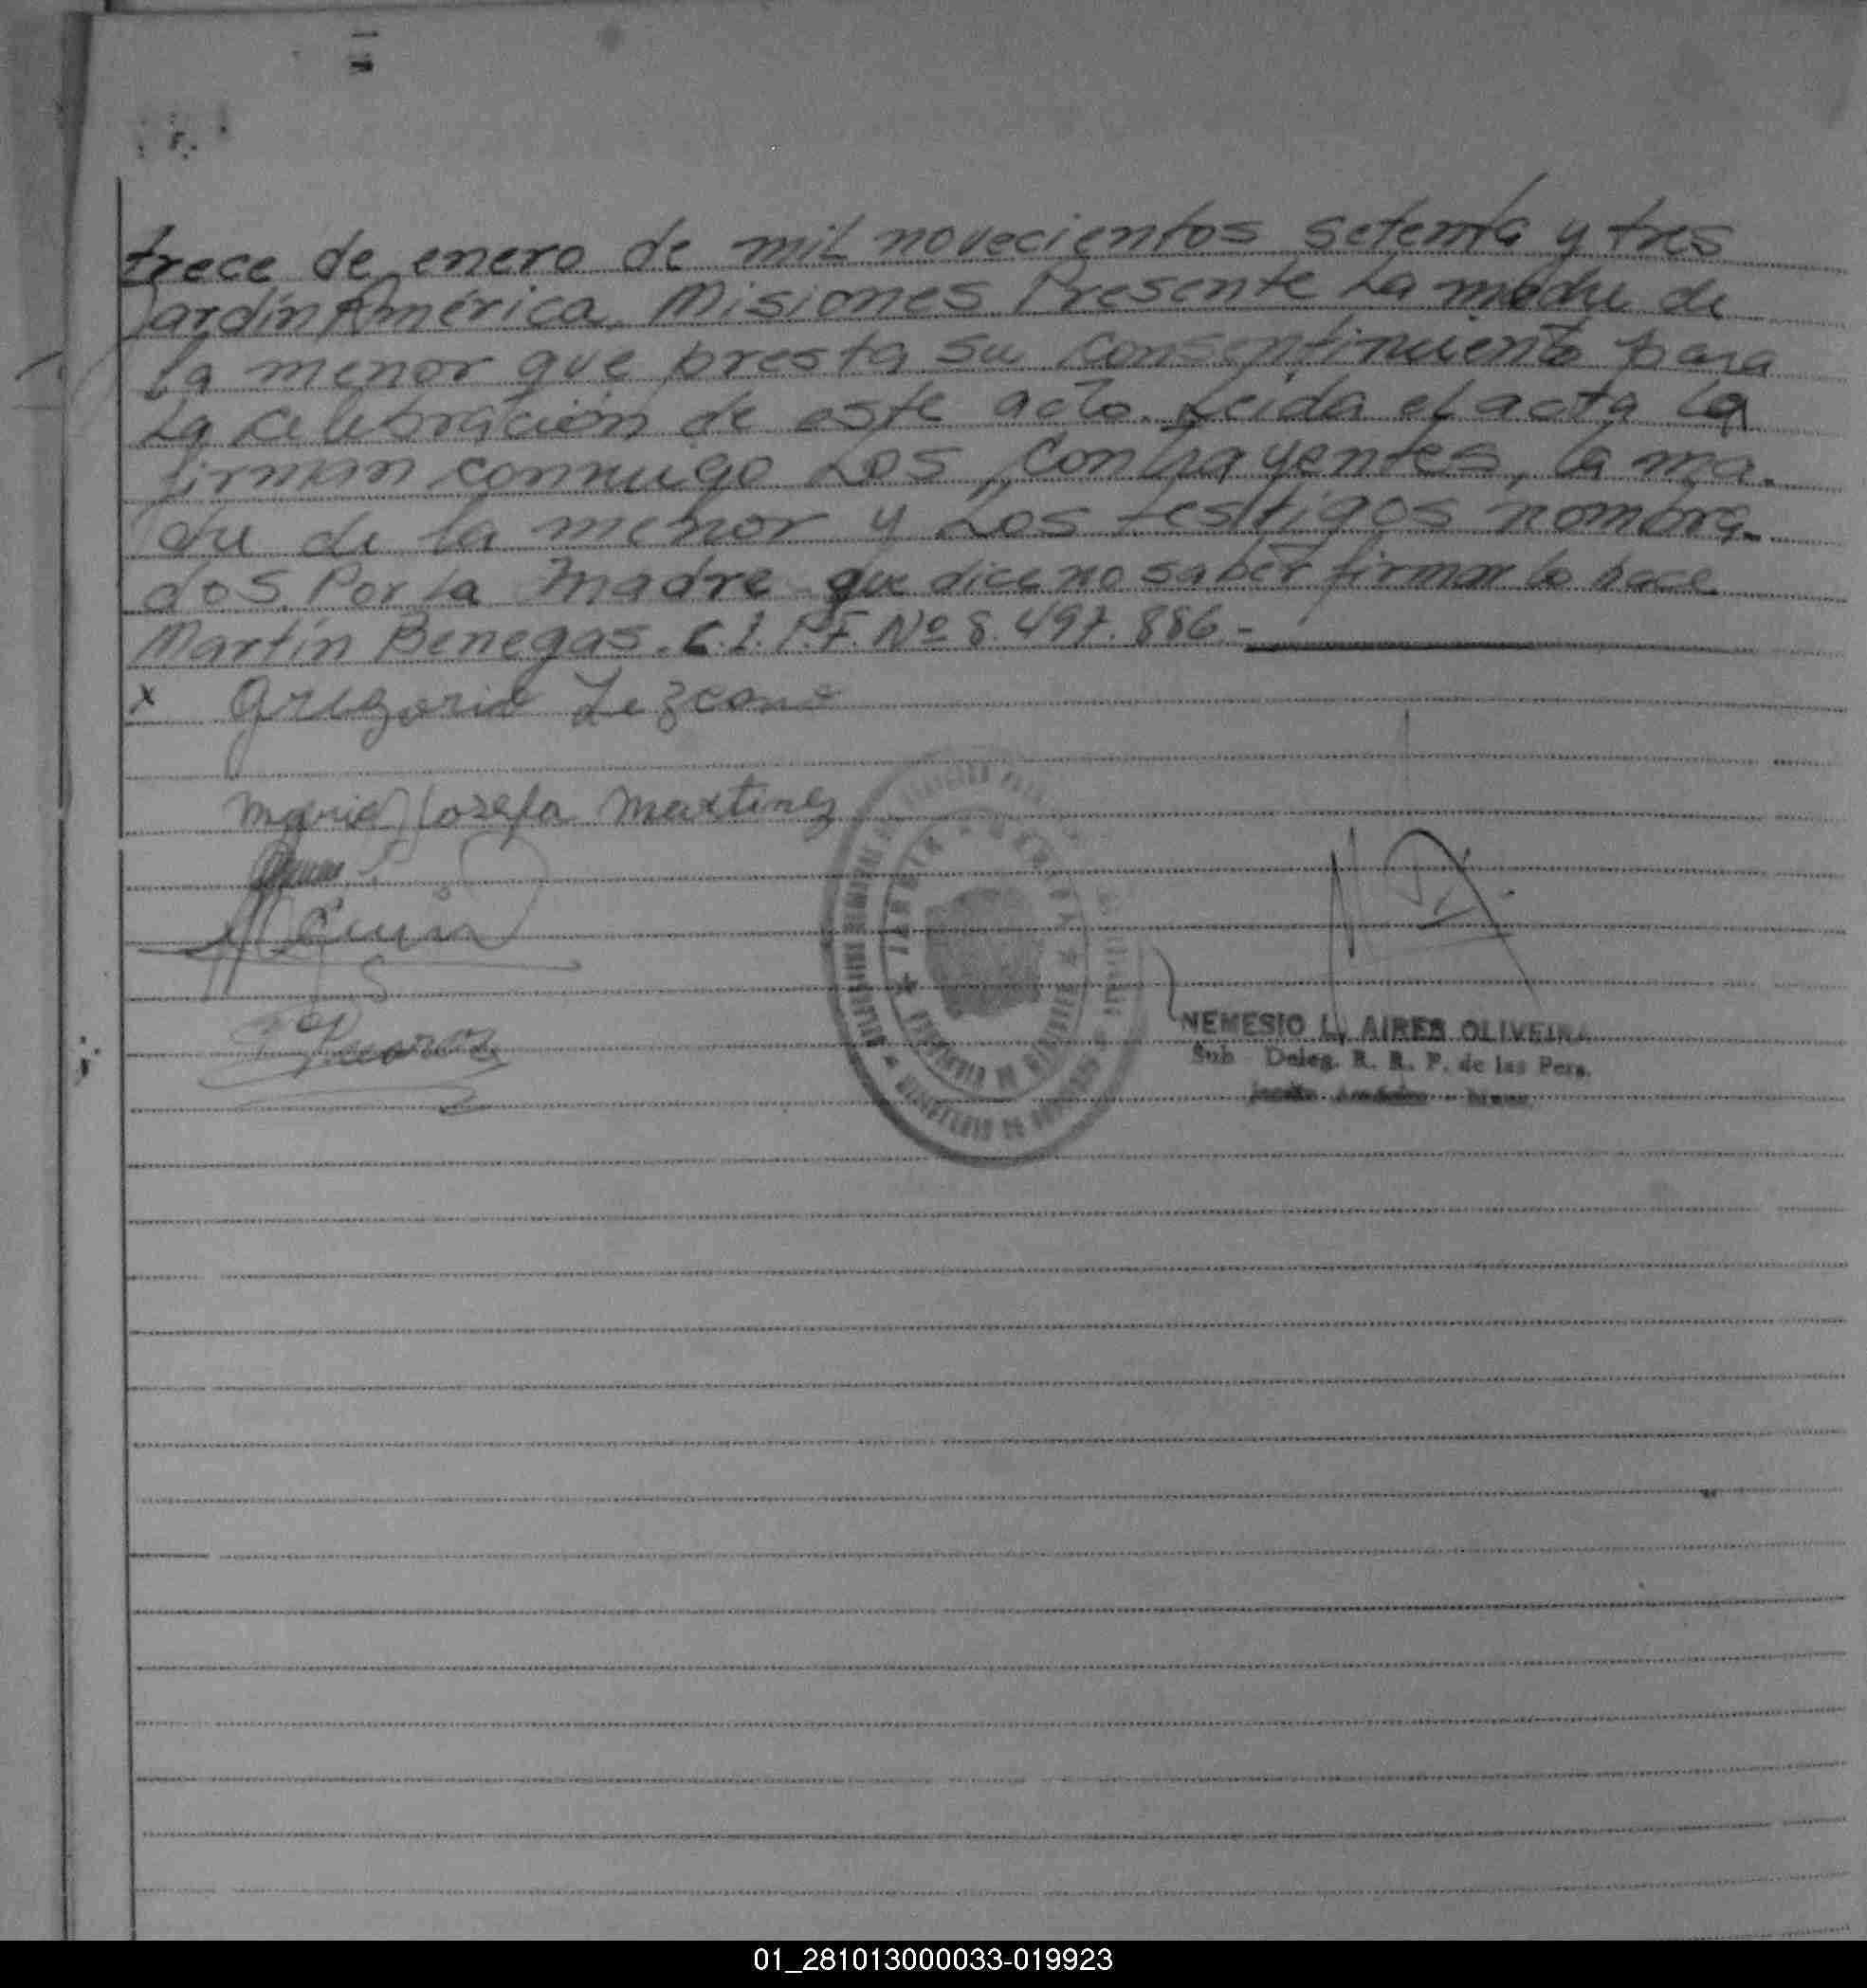 trece de enero de mil novecientos setenta y tres
Jardín América, Misiones Presente La madre de
la menor que presta su consentimiento para
La celebración de este acto. Leida el acta la
firman conmigo Los contrayentes, la ma.
dre de la menor y Los testigos nombra-
dos. Por la madre que dice no saber firmar lo hace
Martín Benegas. C.I. P.F. Nº 8.497.886.-
x Gregorio Lezcano
Maria Josefa Martinez
JARDIN AMERICA
PROVINCIA DE MISIONES
NEMESIO L. AIRES OLIVEIRA
Sub Deleg. R. R. P. de las Pers.
01_281013000033-019923